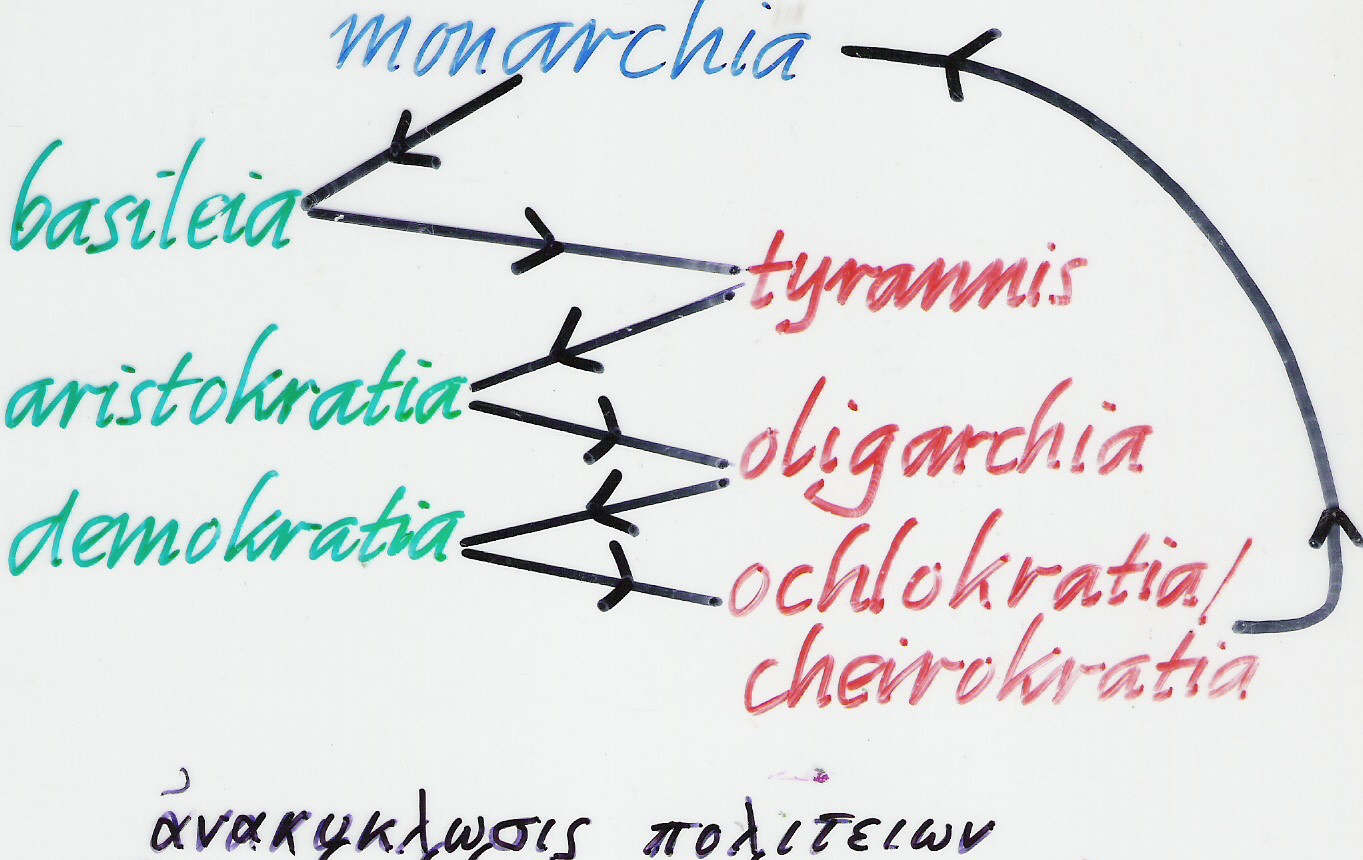 monarchia
basileia
tyrannis
aristokratia
oligarchia
demokratia
ochlokratia/
cheirokratia
ἀνακυκλωσις πολιτειων